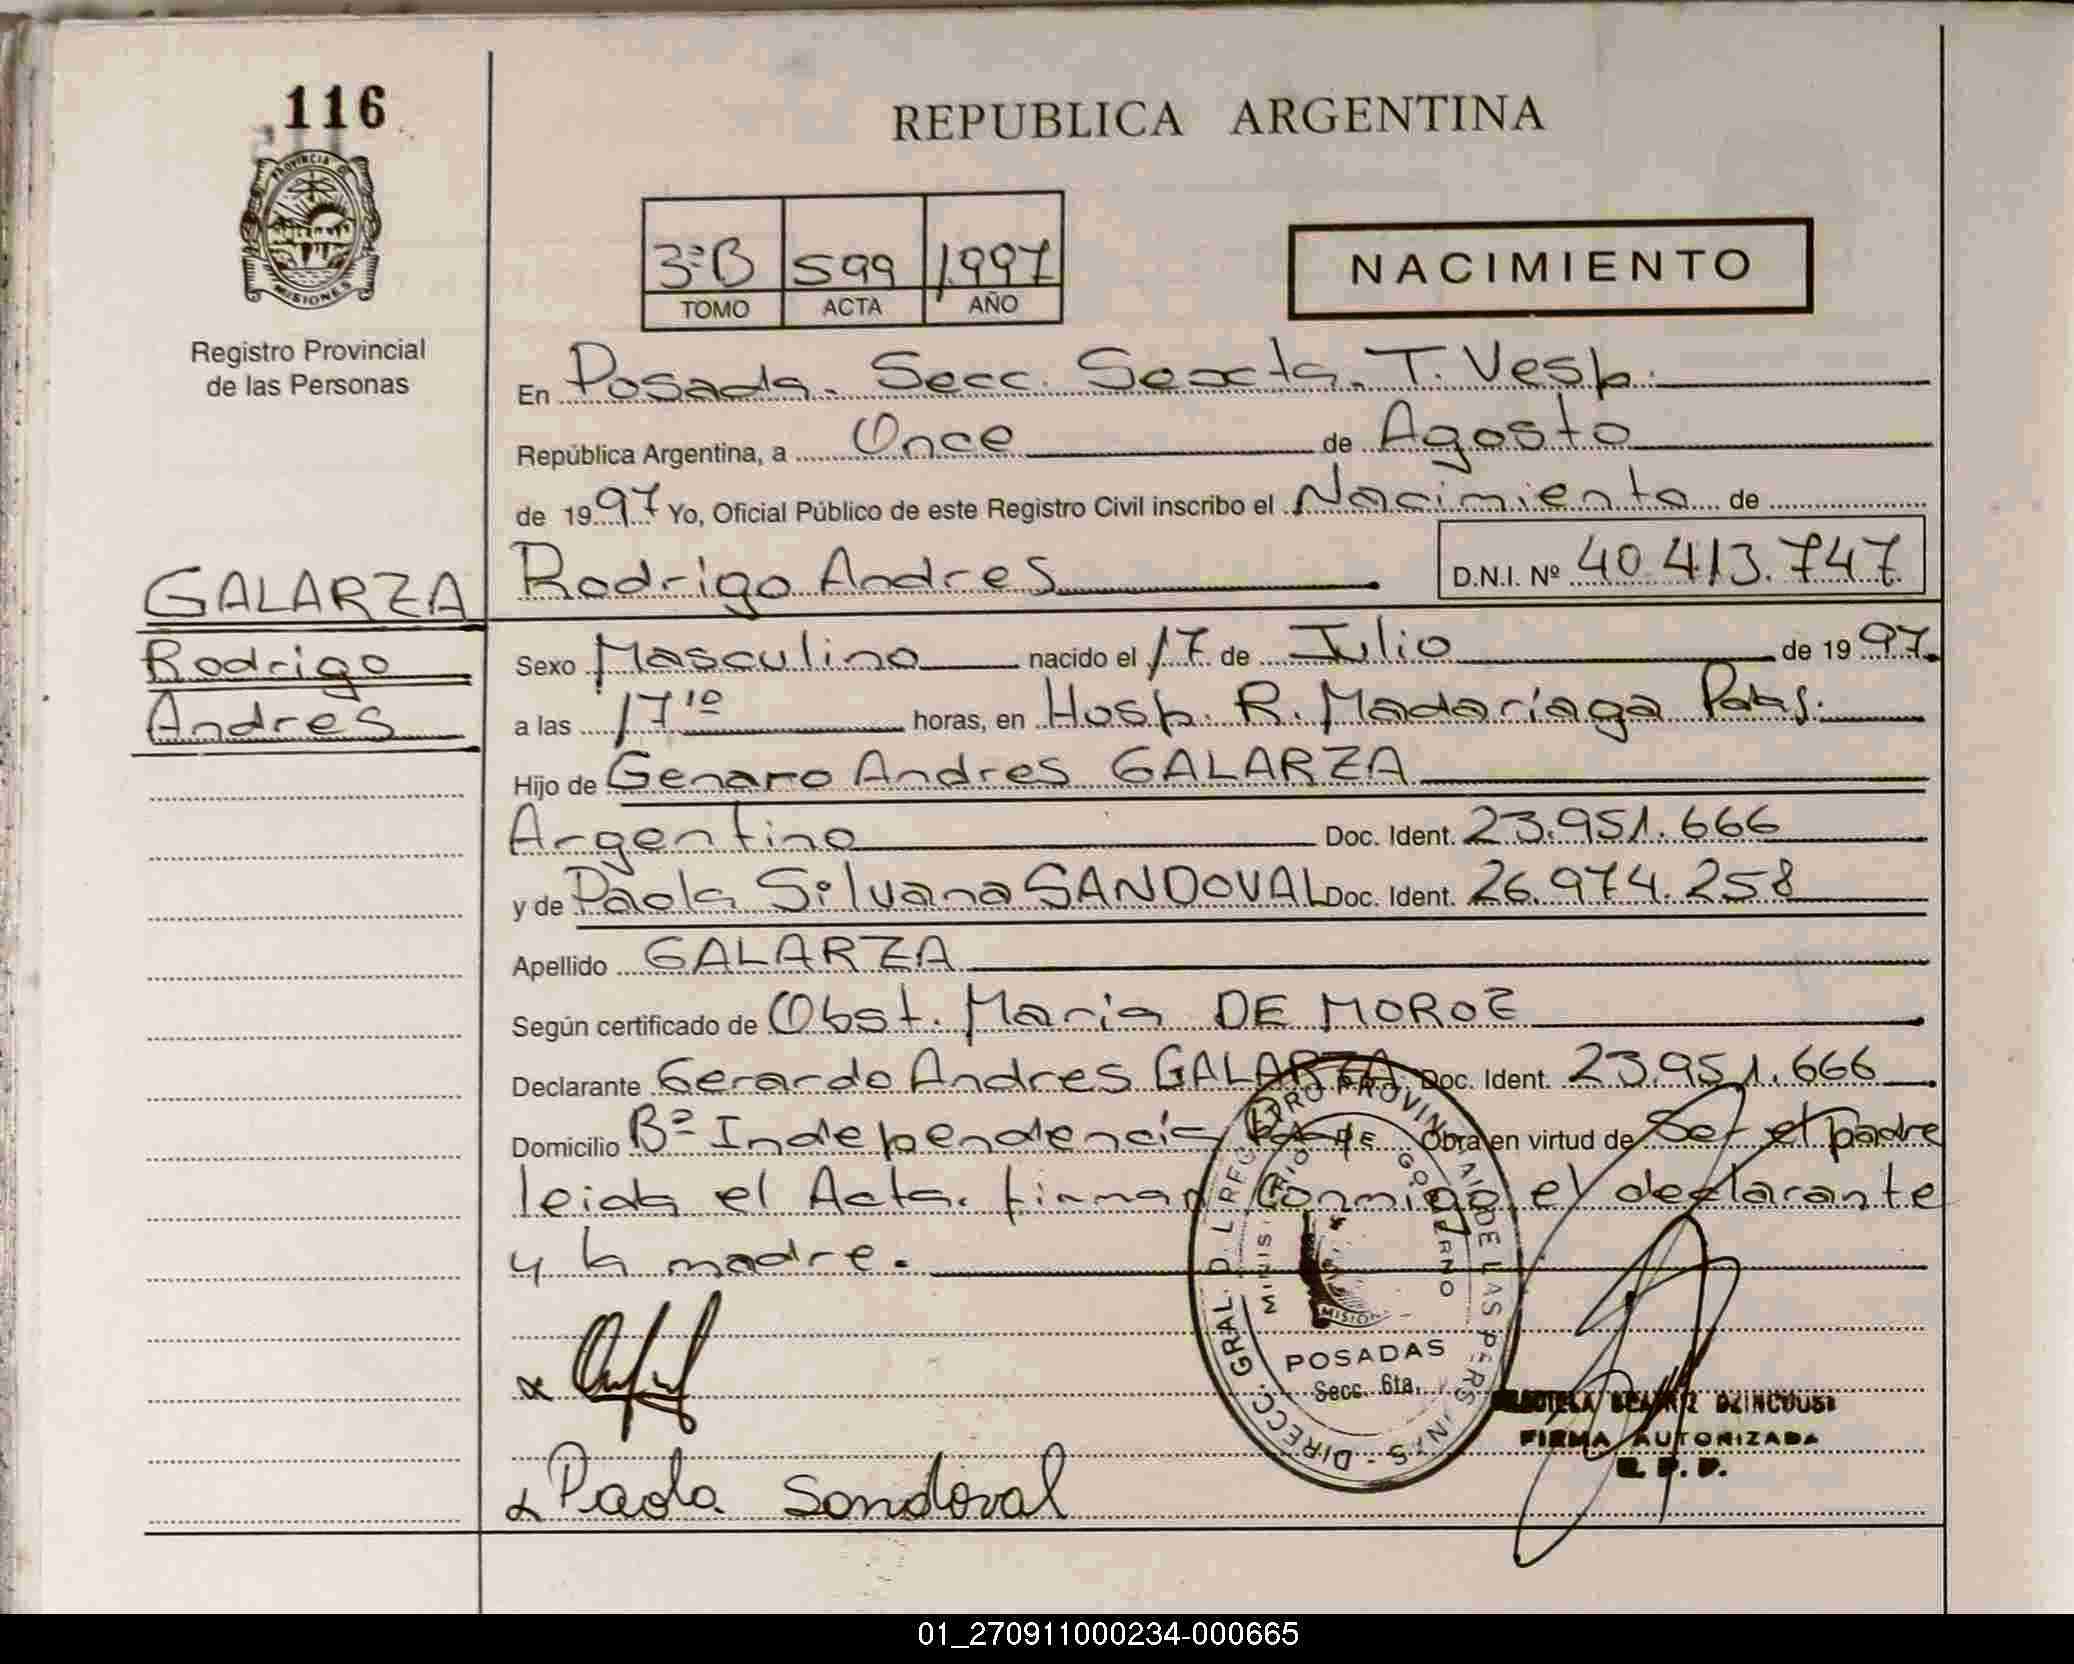 116
PROVINCIA DE
MISIONES
Registro Provincial
de las Personas
GALARZA
Rodrigo
Andres
REPUBLICA ARGENTINA
3ºB 599 1.997
TOMO ACTA AÑO
NACIMIENTO
En Posadas. Secc. Sexta. T. Vesp.
República Argentina, a Once de Agosto
de 1997 Yo, Oficial Público de este Registro Civil inscribo el Nacimiento de
Rodrigo Andres D.N.I. Nº 40.413.747
Sexo Masculino nacido el 17 de Julio de 1997.
a las 17¹⁰ horas, en Hosp. R. Madariaga Pdas.
Hijo de Genaro Andres GALARZA
Argentino Doc. Ident. 23.951.666
y de Paola Silvana SANDOVAL Doc. Ident. 26.974.258
Apellido GALARZA
Según certificado de Obst. Maria DE MOROZ
Declarante Gerardo Andres GALARZA Doc. Ident. 23.951.666
Domicilio Bº Independencia Obra en virtud de Ser el padre
leida el Acta. firman Conmigo el declarante
y la madre.
DIRECC. GRAL. D L REGISTRO PROVINCIAL DE LAS PERSONAS
MINISTERIO DE GOBIERNO
MISIONES
POSADAS
Secc. 6ta.
BEATRIZ
FIRMA AUTORIZADA
R. P. P.
Paola Sandoval
01_270911000234-000665